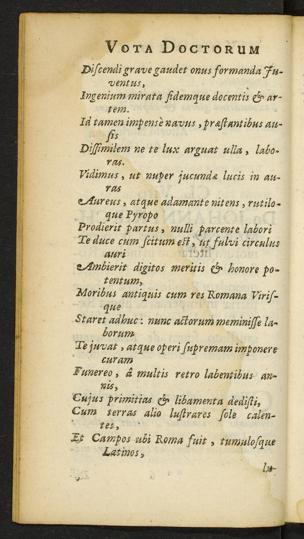 VOTA DOCTORUM
Discendi grave gaudet onus formanda Ju-
ventus,
Ingenium mirata fidemque docentis & ar-
tem.
Id tamen impensè navus, præstantibus au-
sis
Dissimilem ne te lux arguat ulla, labo-
ras.
Vidimus, ut nuper jucundæ lucis in au-
ras
Aureus, atque adamante nitens, rutilo-
que Pyropo
Prodierit partus, nulli parcente labori
Te duce cum scitum est, ut fulvi circulus
auri
Ambierit digitos meritis & honore po-
tentum,
Moribus antiquis cum res Romana Viris-
que
Staret adhuc: nunc actorum meminisse la-
borum
Te juvat, atque operi supremam imponere
curam
Funereo, â multis retro labentibus an-
nis,
Cujus primitias & libamenta dedisti,
Cum terras alio lustrares sole calen-
tes,
Et Campos ubi Roma fuit, tumulosque
Latinos,